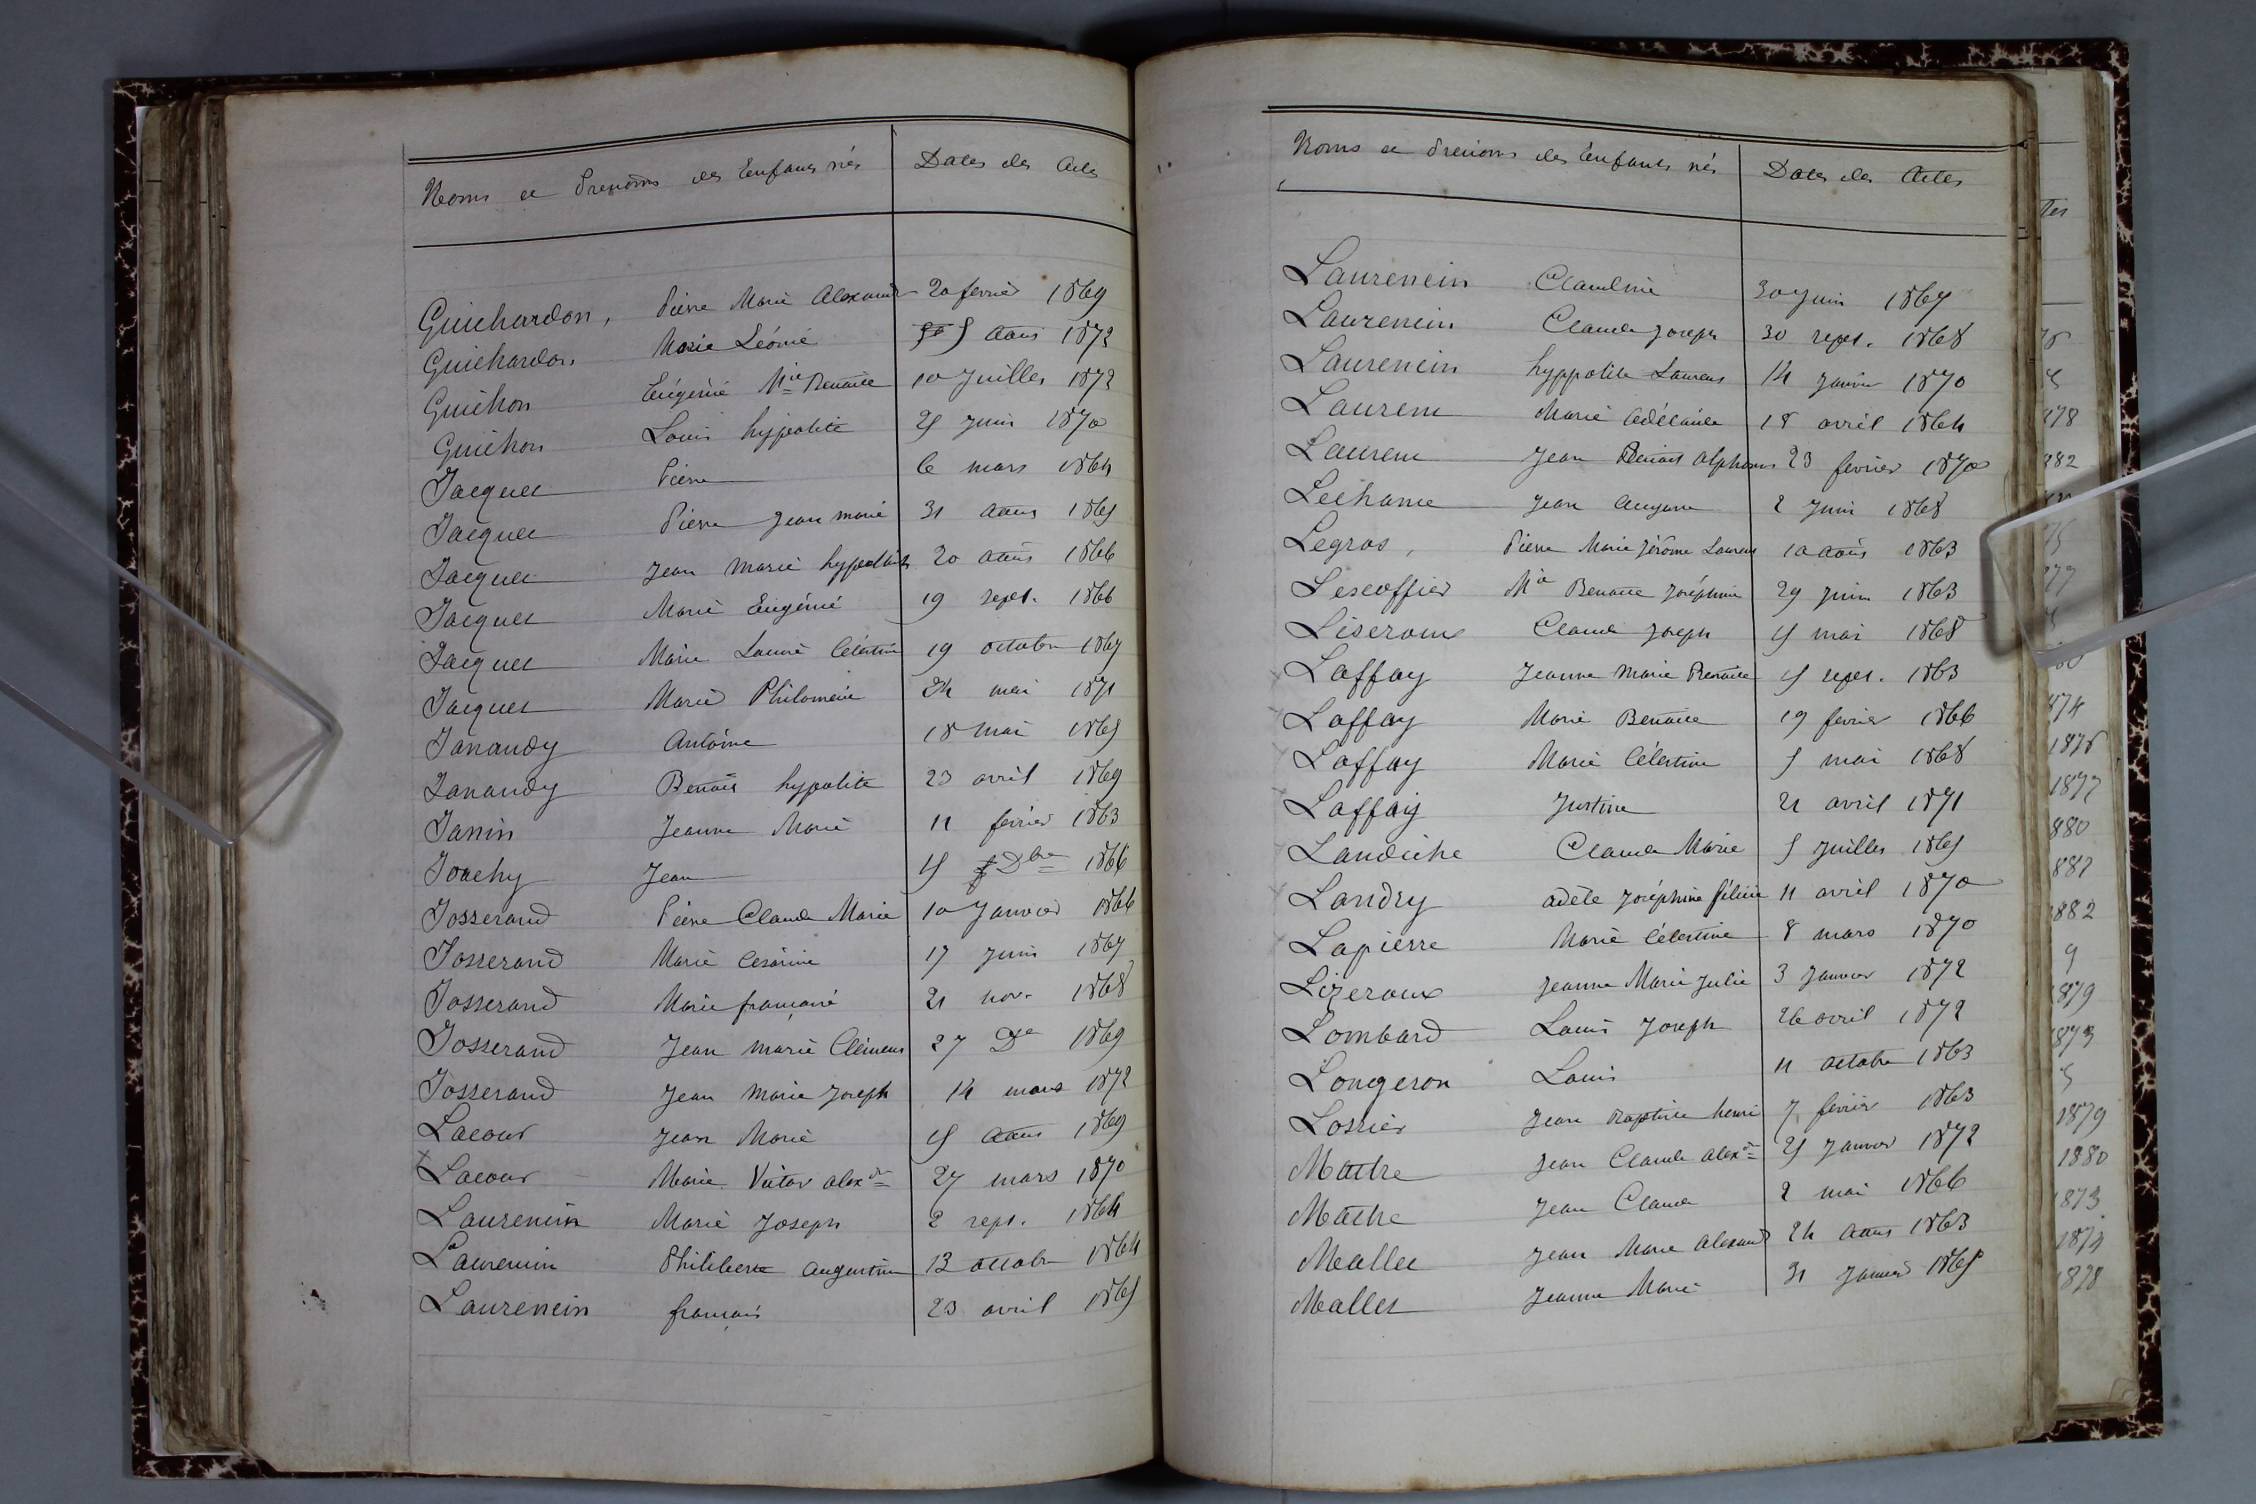 Noms et Prenoms des Enfants nés Dates des Actes
Guichardon, Pierre Marie Alexandre 20 fevrier 1869
Guichardon Marie Léonie 5 août 1872
Guichon Eugénie Mie Benoite 10 Juillet 1872
Guichon Louis hyppolite 25 Juin 1870
Jacquet Pierre 6 mars 1864
Jacquet Pierre Jean marie 31 août 1865
Jacquet Jean Marie hyppolite 20 août 1866
Jacquet Marie Eugénie 19 sept. 1866
Jacquet Marie Laurie Célestine 19 octobre 1867
Jacquet Marie Philomène 24 mai 1871
Janaudy Antoine 18 mai 1865
Janaudy Benoit hypolite 23 avril 1869
Janin Jeanne Marie 11 février 1863
Jouchy Jean 15 Dbre 1866
Josserand Pierre Claude Marie 10 Janvier 1866
Josserand Marie Césarine 17 Juin 1867
Josserand Marie françoise 21 nov. 1868
Josserand Jean Marie Clément 27 De 1869
Josserand Jean Marie Joseph 14 mars 1872
Lacour Jean Marie 15 août 1869
Lacour Marie Victor alexdre 27 mars 1870
Laurencin Marie Joseph 2 sept. 1864
Laurencin Philiberte augustine 13 octobre 1864
Laurencin françois 23 avril 1865
Noms et Prenoms des Enfants nés Dates des Actes
Laurencin Claudine 30 Juin 1867
Laurencin Claude Joseph 30 sept. 1868
Laurencin hyppolite Laurent 14 Janvier 1870
Laurent Marie Adélaïde 18 avril 1864
Laurent Jean Benoit Alphonse 23 février 1870
Lechame Jean 2 Juin 1868
Legros, Pierre Marie Jérôme Laurent 10 août 1863
Lescoffier Mie Benoite Joséphine 29 Juin 1863
Liseroux Claude Joseph 15 mai 1868
Laffay Jeanne Marie Benoite 15 sept. 1863
Laffay Marie Benoite 19 février 1866
Laffay Marie Célestine 5 mai 1868
Laffay Justine 21 avril 1871
Laudiche Claude Marie 5 Juillet 1865
Landry adèle Joséphine félicie 11 avril 1870
Lapierre Marie Célestine 8 mars 1870
Lizeroux Jeanne Marie Julie 3 Janvier 1872
Lombard Louis Joseph 26 avril 1872
Longeron Louis 11 octobre 1863
Lossier Jean Baptiste henri 7 février 1863
Mathe Jean Claude Alexdre 25 Janvier 1872
Mathe Jean Claude 2 mai 1866
Mallet Jean Marie Alexand 24 août 1863
Mallet Jeanne Marie 31 Janvier 1865
tes
878
882
877
874
1878
1877
880
881
882
9
1879
1873
5
1879
1880
1873
1874
1878